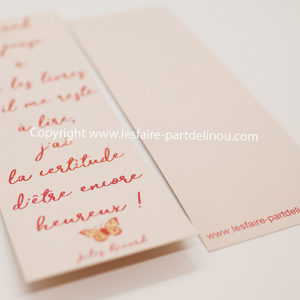 à
les livres
il me reste
à lire,
j'ai
la certitude
d'être encore
heureux !
Jules Renard
Copyright www.lesfaire-partdelinou.com
www.lesfaire-partdelinou.com